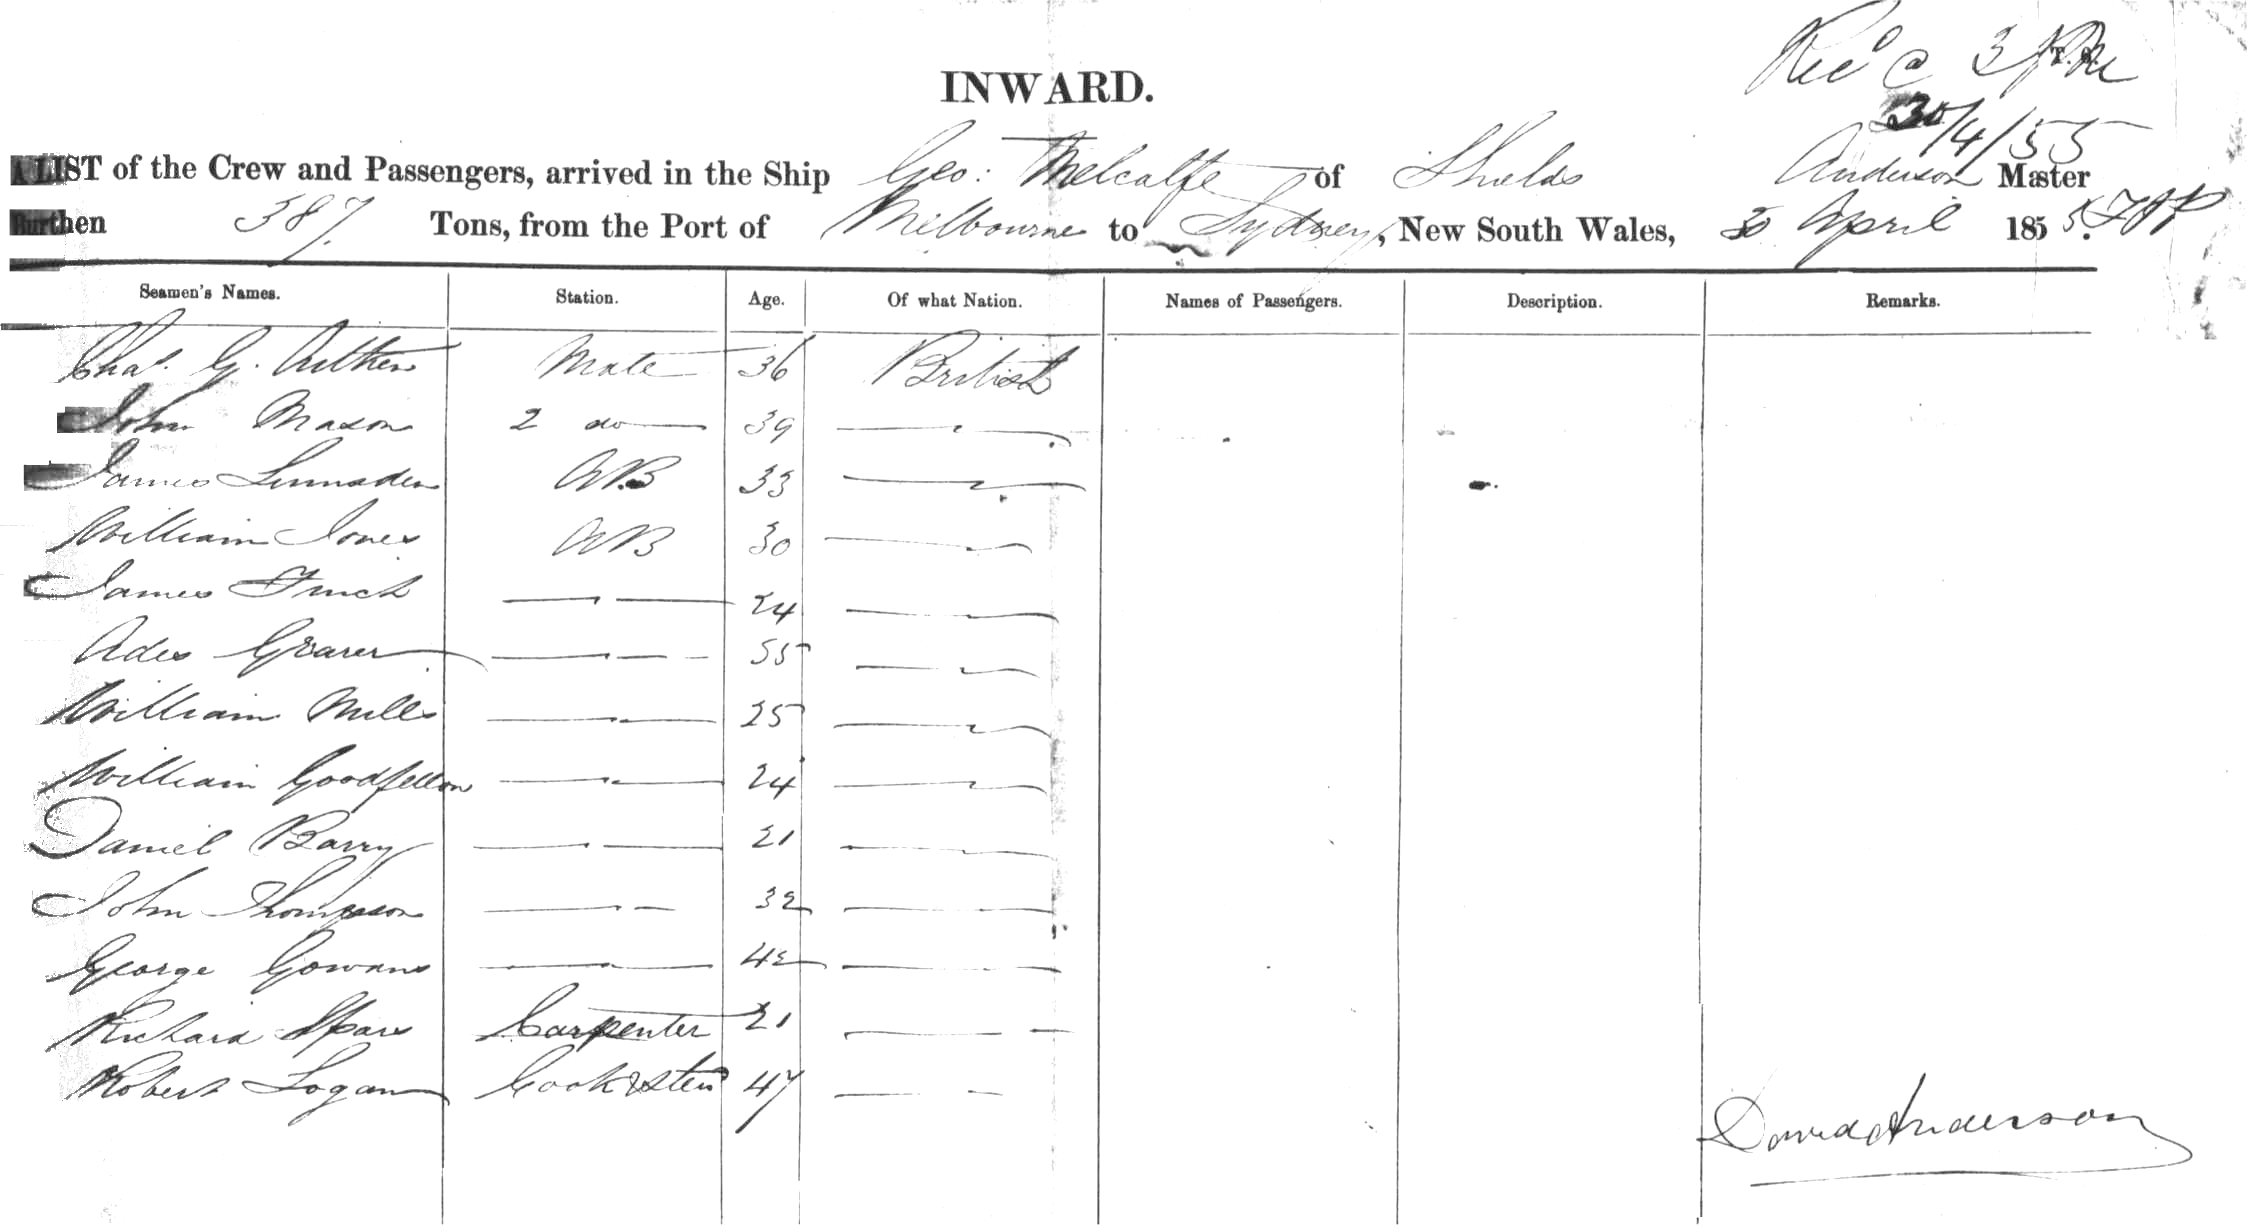 Recd @ 3 PM
30/4/55
INWARD.
A LIST of the Crew and Passengers, arrived in the Ship Geo: Metcalfe of Shields Anderson Master
Burthen 387 Tons, from the Port of Melbourne to Sydney, New South Wales, 30 April 1855.
Seamen's Names. Station. Age. Of what Nation. Names of Passengers. Description. Remarks.
Chas. G. Aitken Mate 36 British
John Mason 2 do 39
James Lumsden AB 33
William Jones AB 30
James Finch 24
Ades 55
William Mills 25
William Goodfellow 24
Daniel Barry 21
John Thompson 32
George Gowans 42
Richard Spars Carpenter 21
Robert Logan Cook & Stew 47
David Anderson